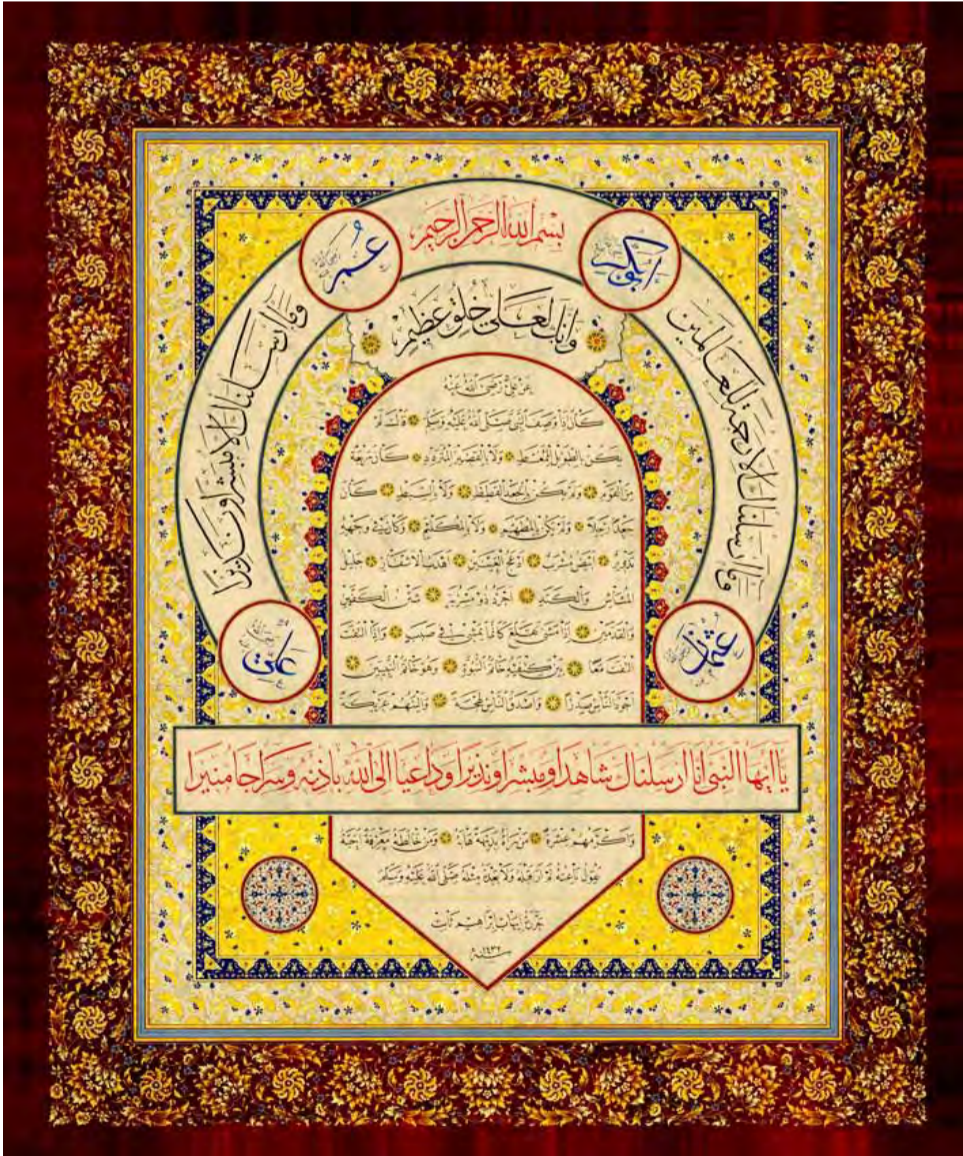 بسم الله الرحمن الرحيم
ابوبكر
عمر
وانك لعلى خلق عظيم
وما ارسلناك الا رحمة للعالمين
وما ارسلناك الا مبشرا ونذيرا
عن علي رضي الله عنه
كان اذا وصف النبي صلى الله عليه وسلم قال لم
يكن بالطويل الممغط ولا بالقصير المتردد كان ربعة
من القوم ولم يكن بالجعد القطط ولا بالسبط كان
جعدا رجلا ولم يكن بالمطهم ولا بالمكلثم وكان في وجهه
تدوير ابيض مشرب ادعج العينين اهدب الاشفار جليل
المشاش والكتد اجرد ذو مسربة شثن الكفين
والقدمين اذا مشى تقلع كانما يمشي في صبب واذا التفت
التفت معا بين كتفيه خاتم النبوة وهو خاتم النبيين
اجود الناس صدرا واصدق الناس لهجة والينهم عريكة
عثمان
علي
يا ايها النبي انا ارسلناك شاهدا ومبشرا ونذيرا وداعيا الى الله باذنه وسراجا منيرا
واكرمهم عشرة من رآه بديهة هابه ومن خالطه معرفة احبه
يقول ناعته لم ار قبله ولا بعده مثله صلى الله عليه وسلم
ايهاب ابراهيم ثابت
سنة ١٤٣٢